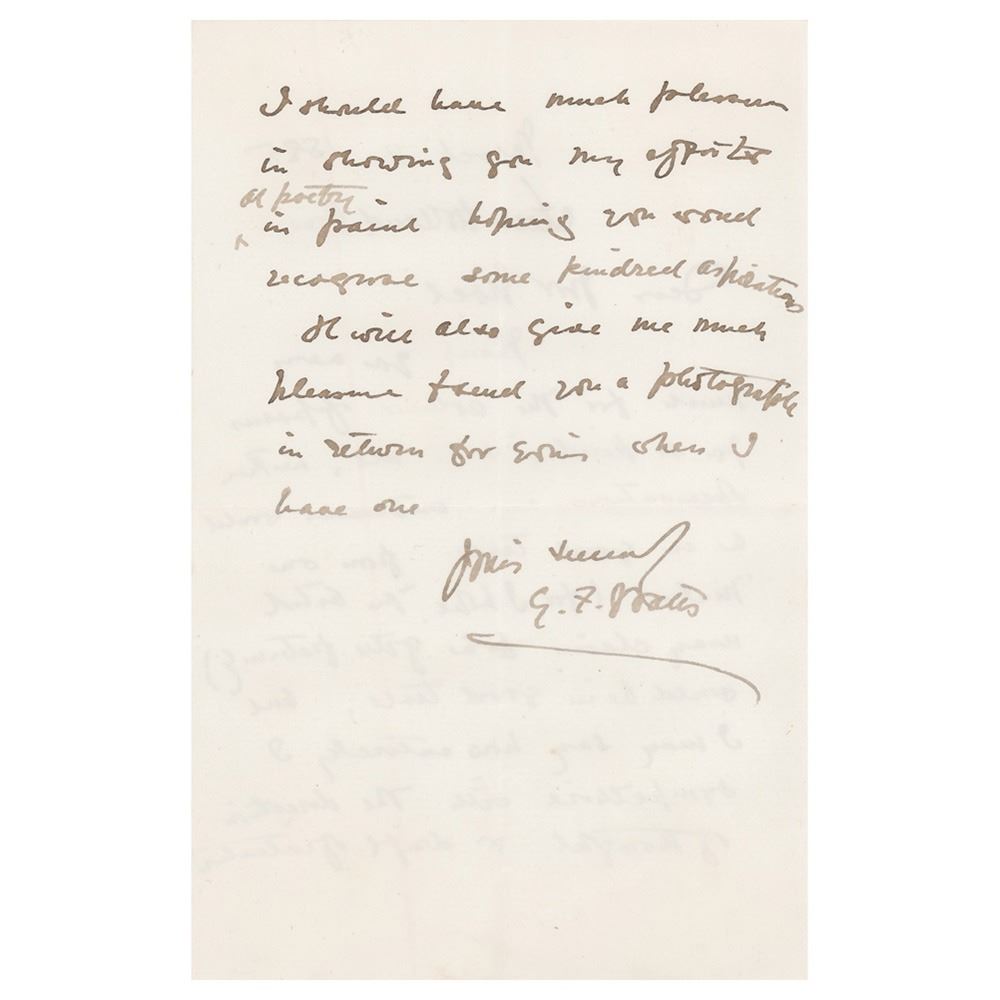 I should have much pleasure
in showing you my efforts
at poetry
in paint hoping you would
recognise some kindred aspirations
It will also give me much
pleasure to send you a photograph
in return for yours when I
have one
Yours sincerely
G. F. Watts